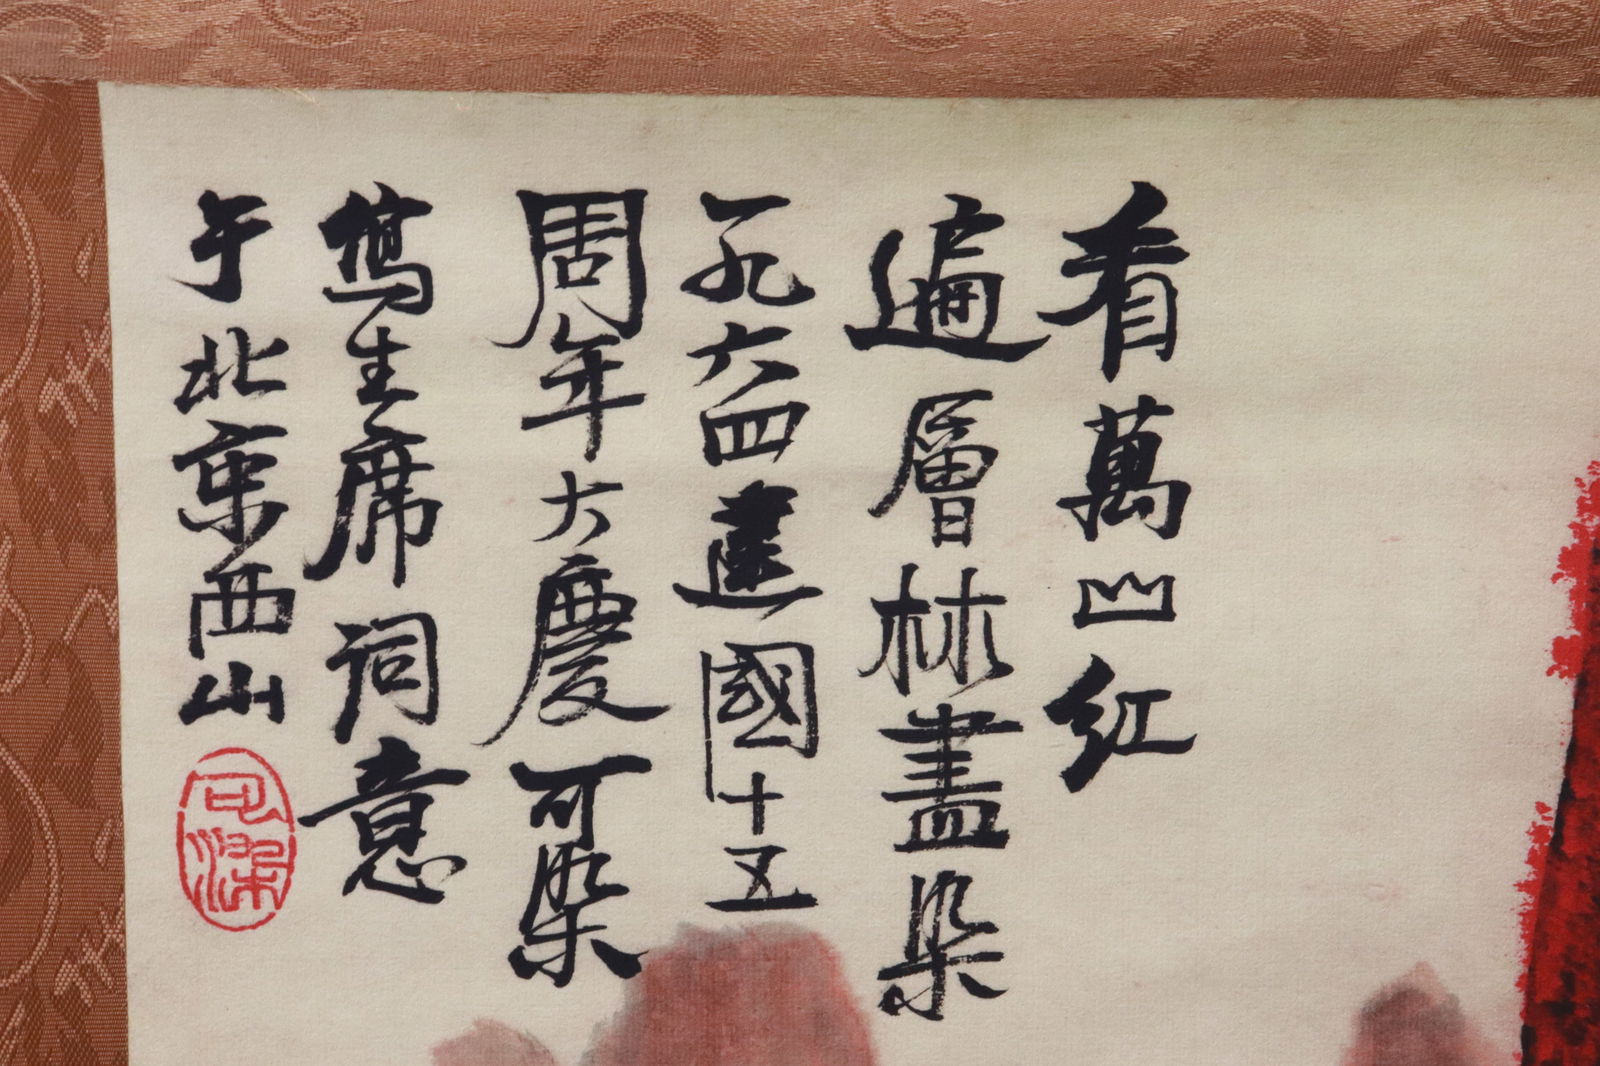 看萬山红
遍層林盡染
一九六四建國十五
周年大慶可染
寫生席詞意
于北京西山
可染